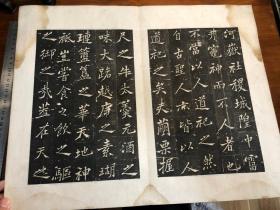 河嶽社稷城隍中霤
其靈神而不人者也
不當以人道祀之然
自古聖人亦皆以人
道祀之矣夫繭栗握
尺之牛太羹元酒之
味大路越席之素瑚
璉簠簋之華天地神
祇豈嘗食之飲之驅
之御之哉蓋在天也